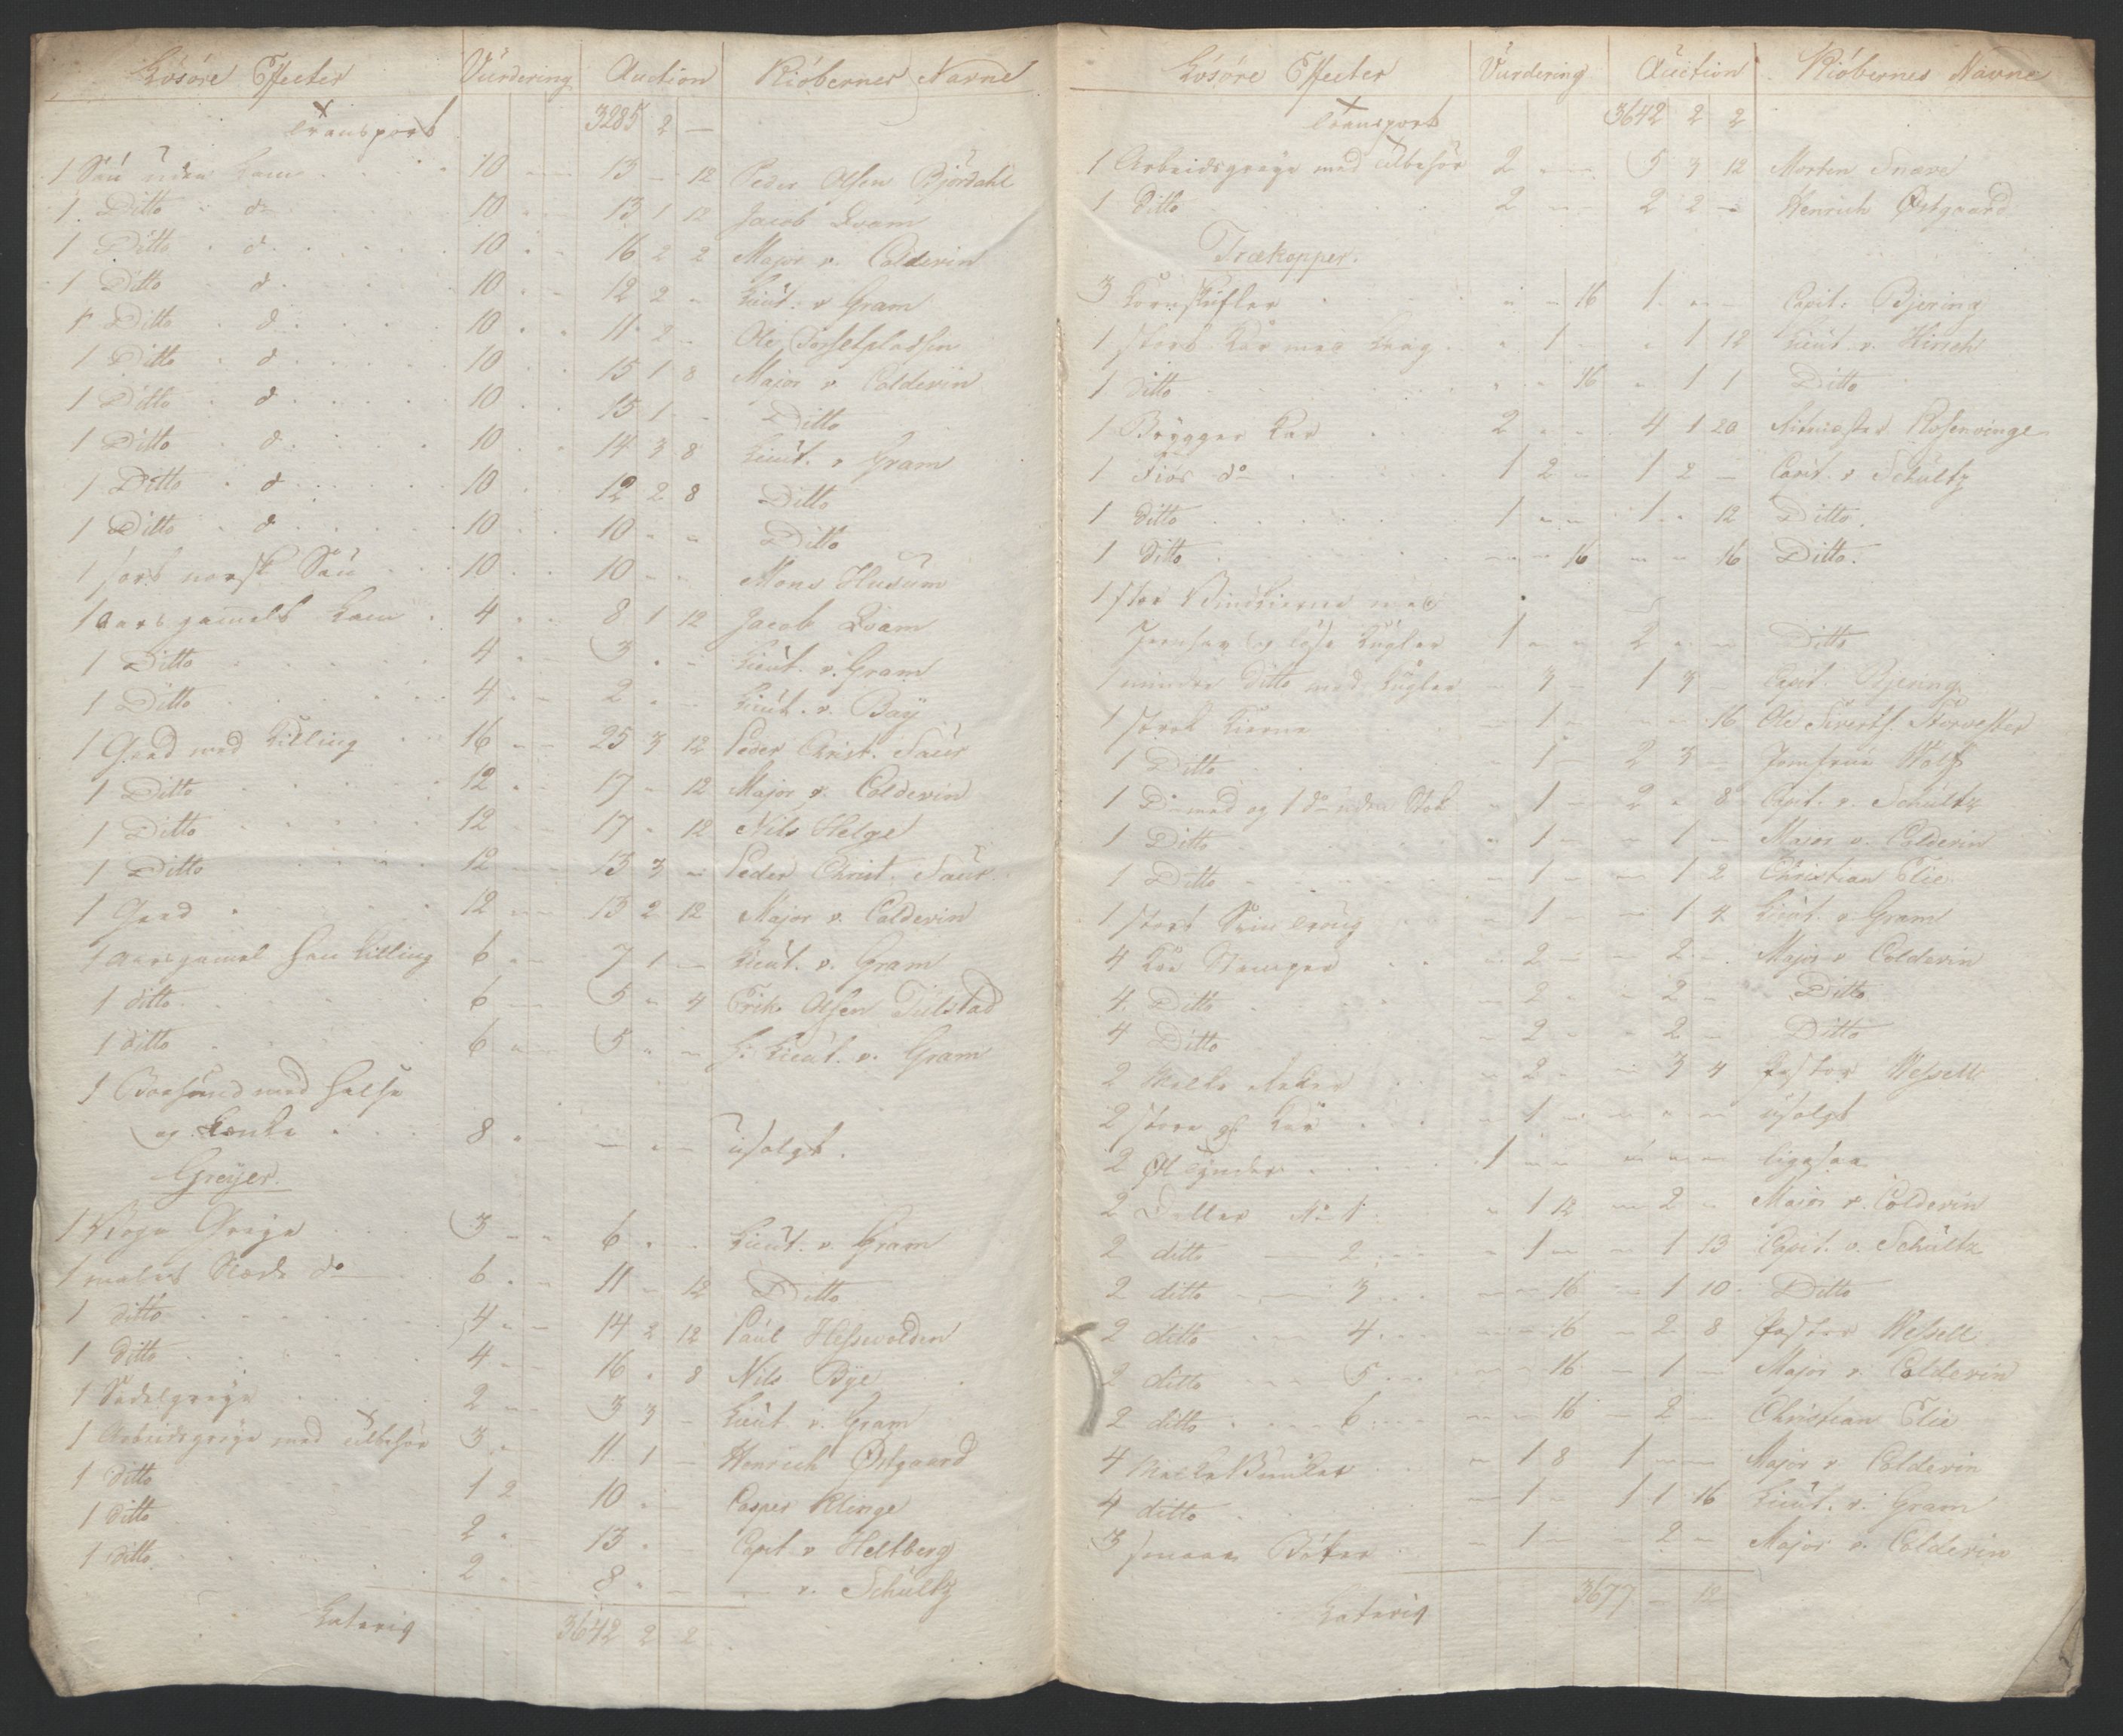 Lösöre Effecter Vurdering Auction Kiöbernes Navne
Transport 3285 2 —
1 Sau uden Lam 10 — — 13 — 12 Peder Olsen Björdahl
1 Ditto d° 10 - - 13 1 12 Jacob Qvam
1 Ditto d° 10 - - 16 2 2 Major v. Coldevin
1 Ditto d° 10 - - 12 2 - Lieut. v Gram
1 Ditto d° 10 - - 11 2 - Ole
1 Ditto d° 10 - - 15 1 8 Major v Coldevin
1 Ditto d° 10 - - 15 1 - Ditto
1 Ditto d° 10 - - 14 3 8 Lieut. v Gram
1 Ditto d° 10 - - 12 2 8 Ditto
1 Ditto d° 10 - - 10 - - Ditto
1 sort norsk Sau 10 - - 10 - - Mons Husum
1 aars gamelt Lam 4 - - 8 1 12 Jacob Qvam
1 Ditto 4 - - 3 - - Lieut. v. Gram
1 Ditto 4 - - 2 - - Lieut. v. Baÿ
1 Geed med Killing 16 - - 25 3 12 Peder Christ. Saur
1 Ditto 12 - - 17 - 12 Major v. Coldevin
1 Ditto 12 - - 17 - 12 Nils Helge
1 Ditto 12 - - 13 3 - Peder Christ. Saur
1 Geed 12 - - 13 2 12 Major v. Coldevin
1 Aarsgamel han Killing 6 - - 7 1 - Lieut. v. Gram
1 ditto 6 - - 5 - 4 Erik Olsen Tulstad
1 ditto 6 - - 5 - - H: Lieut. v. Gram
1 med Halse
og Lænke 8 - - - - - usolgt.
Greÿer.
1 Greÿe 3 - - 6 - - Lieut. v. Gram
1 malet Slæde d° 6 - - 11 - 12 Ditto
1 ditto 4 - - 14 2 12 Paul Hesswolden
1 ditto 4 - - 16 - 8 Nils Bÿe
1 Sadelgreÿe 2 - - 3 3 - Lieut v. Gram
1 Arbeidsgreÿe med Tilbehör 3 - 11 1 - Henrich Østgaard
1 ditto 1 2 10 - - Casper Klinge
1 ditto 2 - 13 - - Capt v Heltberg
1 ditto 2 - 8 - - — v. Schultz
Lateris 3642 2 2
Lösöre Effecter Vurdering Auction Kiöbernes Navne
Transport 3642 2 2
1 Arbeidsgreÿe med Tilbehör 2 - - 5 3 12 Morten Snare
1 Ditto 2 - - 2 2 - Henrich Østgaard
Trækopper.
3 Kornskufler - - 16 1 - - Capit: Bjering
1 stort Kar med Laag - 1 - - 1 12 Lieut. v. Hirsch
1 Ditto - - 16 - 1 1 Ditto
1 Brygger Kar 2 - - 4 1 20 Ritmester Rosenvinge
1 Fiös d° 1 2 - 1 2 - Capit. v Schultz
1 ditto 1 - - 1 - 12 Ditto.
1 Ditto - - 16 - - 16 Ditto.
1 stor med
og löse Kugler 1 - - 2 - - Ditto
1 mindre Ditto med Kugler - 3 - 1 3 - Capit. Bjering
1 stork Kierne - 1 - - - 16 Ole Sivertss. Storvester
1 Ditto - 1 - 2 3 - Jomfrue Wolf
1 D° med og 1 d° uden Stok - 1 - 2 - 8 Capit. v. Schultz
1 Ditto - 1 - - 1 - Major v. Coldevin
1 Ditto - 1 - - 1 2 Christian Elie
1 stort Sviin Troug - 1 - - 1 4 Lieut. v Gram
4 Stamper - 2 - - 2 - Major v Coldevin
4 Ditto - 2 - - 2 - Ditto
4 Ditto - 2 - - 2 - Ditto
2 Melke - 2 - - 3 4 Pastor Wessell
2 store Kar - 1 - - - - usolgt
2 Øl Tynder 1 - - - - - ligesaa
2 Saller N° 1 - 1 12 - 2 - Major v. Coldevin
2 ditto — 2 - 1 - - 1 13 Capit. v. Schultz
2 ditto — 3 - - 16 - 1 10 Ditto
2 ditto — 4 - - 16 - 2 8 Pastor Wessell
2 ditto — 5 - - 16 - 1 - Major v. Coldevin
2 ditto — 6 - - 16 - 2 - Christian Elie
4 - 1 8 1 - - Major v Coldevin
4 ditto - 1 - 1 1 16 Lieut. v. Gram
3 smaae Bötter - 1 - - 2 - Major v. Coldevin
Lateris 3677 - 12